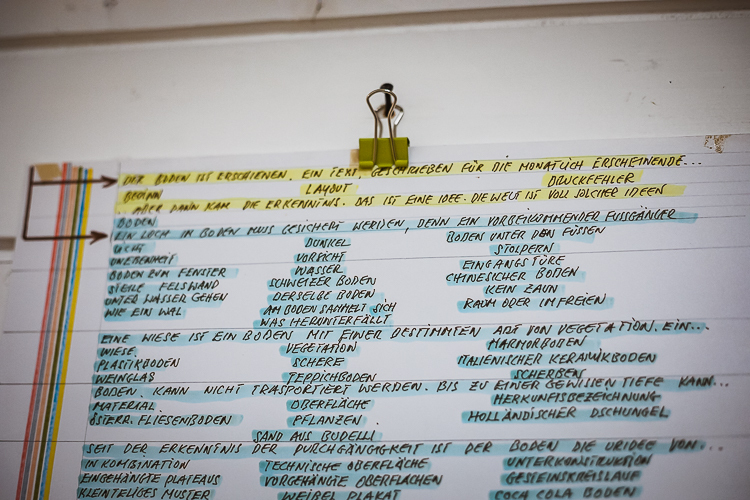 DER BODEN IST ERSCHIENEN. EIN TEXT, GESCHRIEBEN FÜR DIE MONATLICH ERSCHEINENDE...
BEGINN LAYOUT DRUCKFEHLER
... ABER DANN KAM DIE ERKENNTNIS. DAS IST EINE IDEE. DIE WELT IST VOLL SOLCHER IDEEN
BODEN
EIN LOCH IM BODEN MUSS GESICHERT WERDEN, DENN EIN VORBEIKOMMENDER FUSSGÄNGER
LICHT DUNKEL BODEN UNTER DEN FÜSSEN
UNEBENHEIT VORSICHT STOLPERN
BODEN ZUM FENSTER WASSER EINGANGSTÜRE
STEILE FELSWAND SCHWEIZER BODEN CHINESICHER BODEN
UNTER WASSER GEHEN DERSELBE BODEN KEIN ZAUN
WIE EIN WAL AM BODEN SAMMELT SICH RAUM ODER IM FREIEN
WAS HERUNTERFÄLLT
EINE WIESE IST EIN BODEN MIT EINER BESTIMMTEN ART VON VEGETATION. EIN...
WIESE VEGETATION MARMORBODEN
PLASTIKBODEN SCHERE ITALIENISCHER KERAMIKBODEN
WEINGLAS TEPPICHBODEN SCHERBEN
BODEN KANN NICHT TRASPORTIERT WERDEN. BIS ZU EINER GEWISSEN TIEFE KANN...
MATERIAL OBERFLÄCHE HERKUNFTSBEZEICHNUNG
ÖSTERR. FLIESENBODEN PFLANZEN HOLLÄNDISCHER DSCHUNGEL
SAND AUS BUDELLI
SEIT DER ERKENNTNIS DER DURCHGÄNGIGKEIT IST DER BODEN DIE URIDEE VON...
IN KOMBINATION TECHNISCHE OBERFLÄCHE UNTERKONSTRUKTION
EINGEHÄNGTE PLATEAUS VORGEHÄNGTE OBERFLÄCHEN GESTEINSKREISLAUF
KLEINTEILIGES MUSTER WEIBEL PLAKAT COCA COLA BODEN